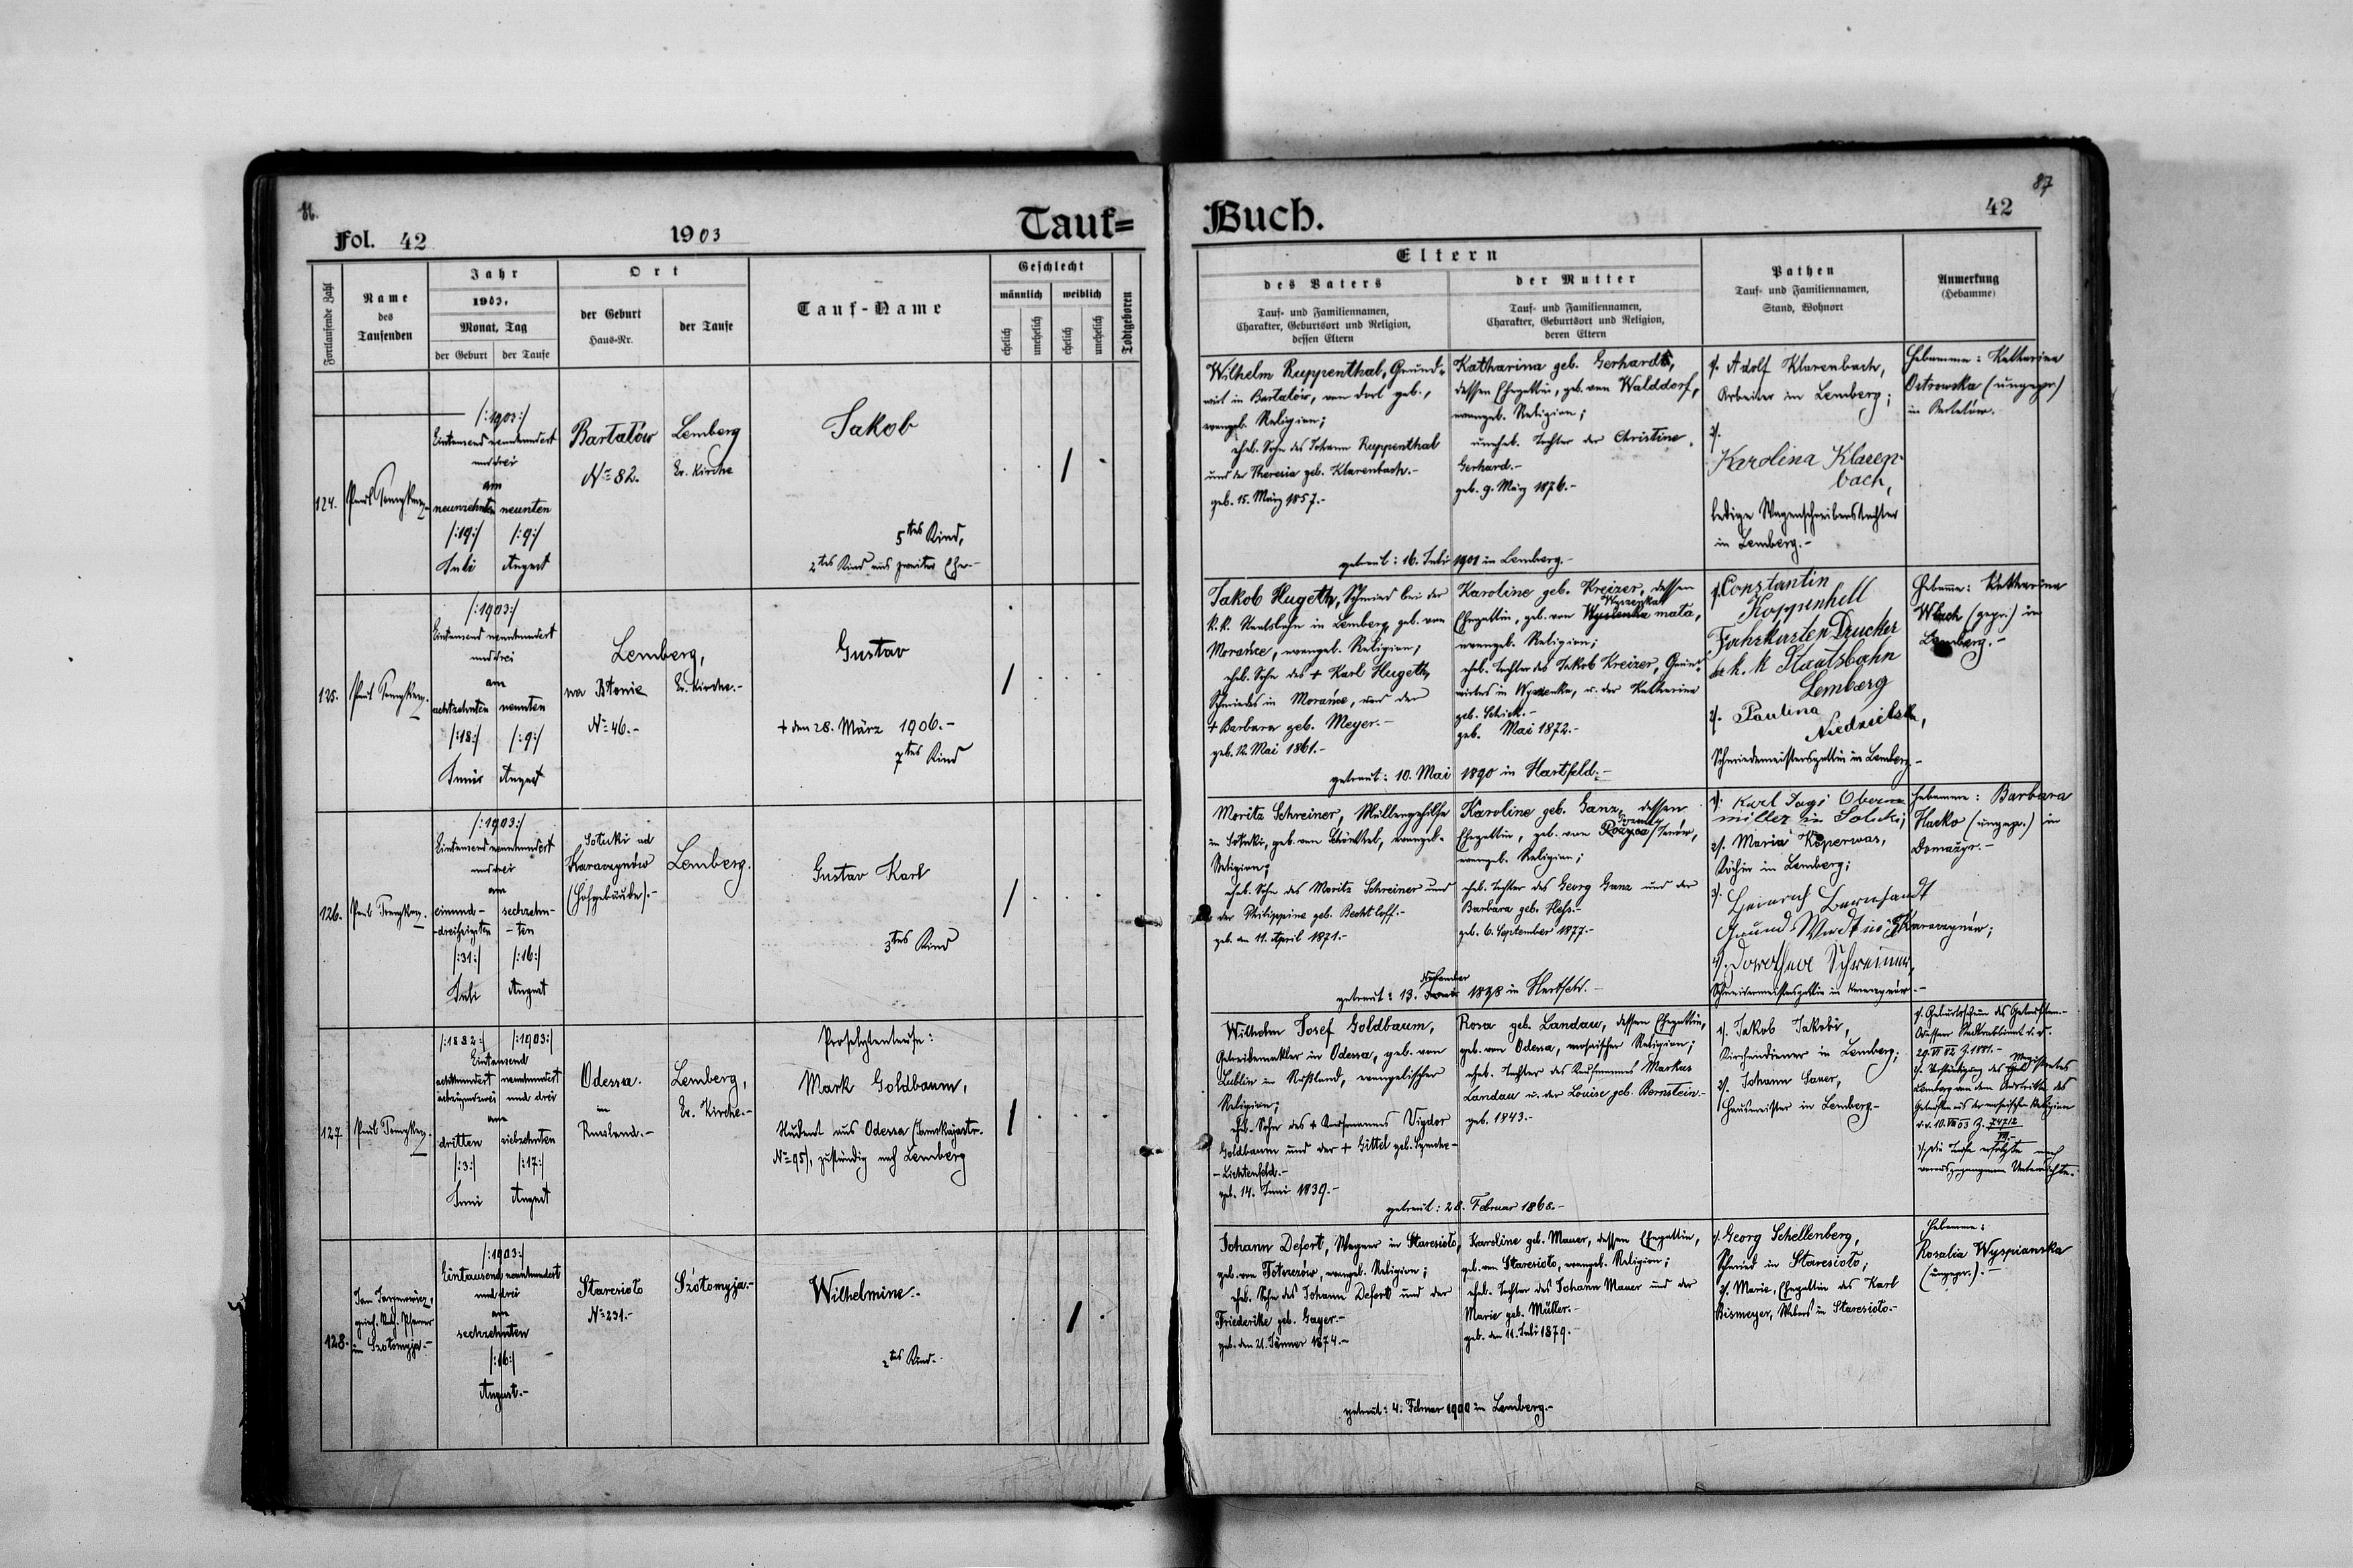 86.
Fol. 42
1903
Tauf=
Fortlaufende Zahl
Name
des
Taufenden
Jahr
1903.
Monat, Tag
der Geburt
der Taufe
Ort
der Geburt
Haus-Nr.
der Taufe
Tauf-Name
Geschlecht
männlich
weiblich
ehelich
unehelich
ehelich
unehelich
Todtgeboren
124.
/:1903:/
Eintausend neunhundert
und drei
am
neunzehnten
neunten
/:19:/
/:9:/
Juli
August
Bartatów
№ 82.
Lemberg
Ev. Kirche
Jakob
5tes Kind,
2tes Kind aus zweiter Ehe.-
125.
/:1903:/
Eintausend neunhundert
und drei
am
achtzehnten
neunten
/:18:/
/:9:/
Junis
August
Lemberg,
na Błonie
Ev. Kirche.-
№ 46.-
Gustav
+ den 28. März 1906.-
7tes Kind
126.
/:1903:/
Eintausend neunhundert
und drei
am
einund-
-dreißigsten
sechzehn-
-ten
/:31:/
/:16:/
Juli
August
ad
Karaczynów
(Hofgebäude).-
Lemberg.
Gustav Karl
3tes Kind
127.
/:1882:/
/:1903:/
Eintausend
achthundert
neunhundert
achtzigundzwei
und drei
am
dritten
siebzehnten
/:3:/
/:17:/
Juni
August
Odessa.
in
Russland.-
Lemberg,
Ev. Kirche.-
Proselytentaufe:
Mark Goldbaum,
Student aus Odessa
№ 95), zuständig nach Lemberg
128.
griech. kath. Pfarrer
in Szołomyja.-
/:1903:/
Eintausend neunhundert
und drei
am
sechzehnten
/:16:/
August.-
Staresioło
№ 231.-
Szołomyja.-
Wilhelmine.-
2tes Kind.-
Buch.
87
42
Eltern
des Vaters
Tauf- und Familiennamen,
Charakter, Geburtsort und Religion,
dessen Eltern
der Mutter
Tauf- und Familiennamen,
Charakter, Geburtsort und Religion,
deren Eltern
Pathen
Tauf- und Familiennamen,
Stand, Wohnort
Anmerkung
(Hebamme)
Wilhelm Ruppenthal, Grund-
wirt in Bartatów, von dort geb.,
evangel. Religion;
ehel. Sohn des Johann Ruppenthal
und der Theresia geb. Klarenbach.-
geb. 15. März 1857.-
Katharina geb. Gerhardt,
dessen Ehegattin, geb. von Walddorf,
evangel. Religion;
unehel. Tochter der Christine
Gerhard.-
geb. 9. März 1876.-
getraut: 16. Juli 1901 in Lemberg.-
1/. Adolf Klarenbach,
Arbeiter in Lemberg;
2/.
Karolina Klaren-
bach,
ledige Wagenschreiberstochter
in Lemberg.-
Hebamme: Katharina
Ostrowska (ungepr.)
in Bartatów.-
Jakob Hugeth, Schmied bei der
k.k. Staatsbahn in Lemberg, geb. von
Morańce, evangel. Religion,
ehel. Sohn des + Karl Hugeth,
Schmiedes in Morańce, und der
+ Barbara geb. Meyer.-
geb. 12. Mai 1861.-
Karoline geb. Kreizer, dessen
Wyszenka
Ehegattin, geb. von Wyslenka mała,
evangel. Religion;
ehel. Tochter des Jakob Kreizer, Grund-
wirtes in Wyszenka, u. der Katharina
geb. Schick.-
geb. Mai 1872.-
getraut: 10. Mai 1890 in Hartfeld.-
1/. Constantin
Koppenhell
Fahrkarten Drucker
der k. k Staatsbahn
Lemberg
2/. Paulina
Niedzielska,
Schmiedemeistersgattin in Lemberg.-
Hebamme: Katharina
(gepr.) in
Lemberg.-
Moritz Schreiner, Müllergehilfe
evangel.
Religion;
ehel. Sohn des Moritz Schreiner und
der Philippine geb. Bechtloff.-
geb. am 11. April 1871.-
Karoline geb. Ganz, dessen
Ehegattin, geb. von
evangel. Religion;
ehel. Tochter des Georg Ganz und der
Barbara geb. Hess.-
geb. 6. September 1877.-
November
getraut: 13. 1898 in Hartfeld.-
1/. Karl
2/. Maria Koperwas,
Köchin in Lemberg;
3/. Heinrich Bernhardt
Grund Wirdt in Karaczynów;
4/. Dorothea Schreiner,
in Karaczynów.-
Hebamme: Barbara
Harko (ungepr.) in
Domażyr.-
Wilhelm Josef Goldbaum,
Getreidemakler in Odessa, geb. von
Lublin in Rußland, evangelischer
Religion;
ehel. Sohn des + Kaufmannes Vigdor
Goldbaum und der + Gittel geb.
-Lichtenfeld.-
geb. 14. Juni 1839.-
Rosa geb. Landau, dessen Ehegattin,
geb. von Odessa, mosaischer Religion;
ehel. Tochter des Kaufmannes Markus
Landau u. der Louise geb. Bornstein.-
geb. 1843.-
getraut: 28. Februar 1868.-
1/. Jakob Jakobi,
Kirchendiener in Lemberg;
2/. Johann Sauer,
Hausmeister in Lemberg.-
1/. Geburtsschein des Getauften
2/. Verständigung des Magistrates
Lemberg von dem Austritte des
Getauften aus der mosaischen Religion
3/. Die Taufe erfolgte nach
vorausgegangenem Unterrichte.
Johann Defort, Wagner in Staresioło,
geb. von evangel. Religion;
ehel. Sohn des Johann Defort und der
Friederike geb. Gayer.-
geb. den 21. Jänner 1874.-
Karoline geb. Mauer, dessen Ehegattin,
geb. von Staresioło, evangel. Religion;
ehel. Tochter des Johann Mauer und der
Marie geb. Müller.-
geb. den 11. Juli 1879.-
getraut: 4. Februar 1900 in Lemberg.-
1/. Georg Schellenberg,
Schmied in Staresioło;
2/. Marie, Ehegattin des Karl
Bismeyer, Webers in Staresioło.-
Hebamme:
Rosalia Wyspianska
(ungepr.).-